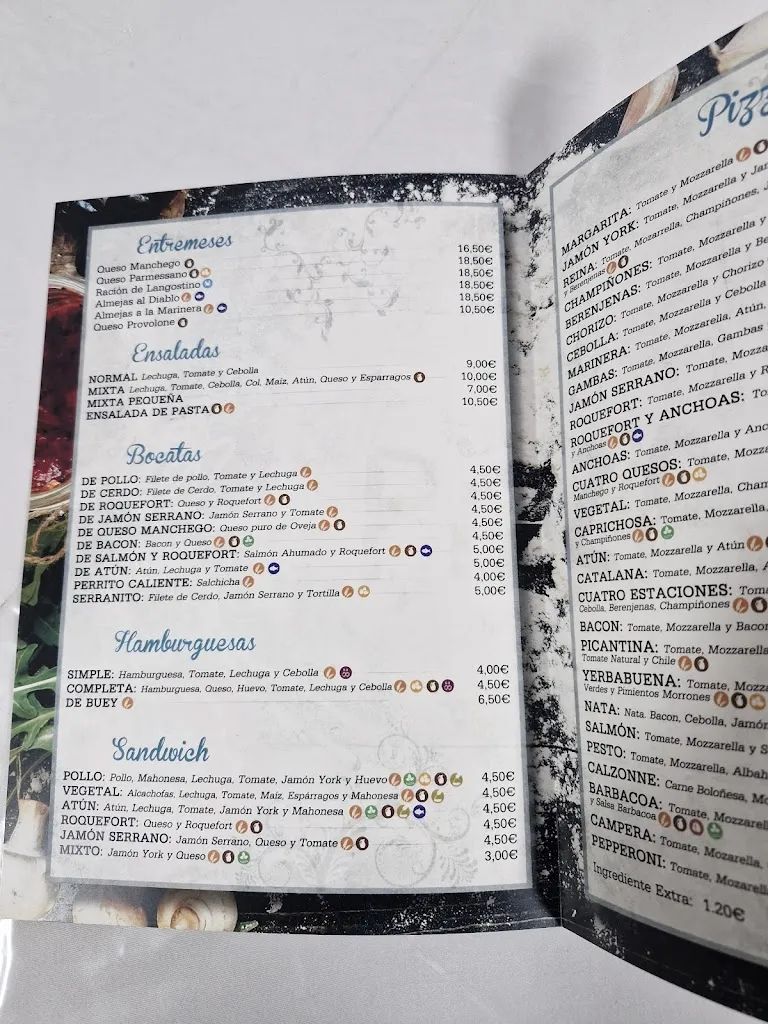 Entremeses
Queso Manchego 16,50€
Queso Parmessano 18,50€
Ración de Langostino 18,50€
Almejas al Diablo 18,50€
Almejas a la Marinera 18,50€
Queso Provolone 10,50€
Ensaladas
NORMAL Lechuga, Tomate y Cebolla 9,00€
MIXTA Lechuga, Tomate, Cebolla, Col, Maíz, Atún, Queso y Esparragos 10,00€
MIXTA PEQUEÑA 7,00€
ENSALADA DE PASTA 10,50€
Bocatas
DE POLLO: Filete de pollo, Tomate y Lechuga 4,50€
DE CERDO: Filete de Cerdo, Tomate y Lechuga 4,50€
DE ROQUEFORT: Queso y Roquefort 4,50€
DE JAMÓN SERRANO: Jamón Serrano y Tomate 4,50€
DE QUESO MANCHEGO: Queso puro de Oveja 4,50€
DE BACON: Bacon y Queso 4,50€
DE SALMÓN Y ROQUEFORT: Salmón Ahumado y Roquefort 5,00€
DE ATÚN: Atún, Lechuga y Tomate 5,00€
PERRITO CALIENTE: Salchicha 4,00€
SERRANITO: Filete de Cerdo, Jamón Serrano y Tortilla 5,00€
Hamburguesas
SIMPLE: Hamburguesa, Tomate, Lechuga y Cebolla 4,00€
COMPLETA: Hamburguesa, Queso, Huevo, Tomate, Lechuga y Cebolla 4,50€
DE BUEY 6,50€
Sandwich
POLLO: Pollo, Mahonesa, Lechuga, Tomate, Jamón York y Huevo 4,50€
VEGETAL: Alcachofas, Lechuga, Tomate, Maíz, Espárragos y Mahonesa 4,50€
ATÚN: Atún, Lechuga, Tomate, Jamón York y Mahonesa 4,50€
ROQUEFORT: Queso y Roquefort 4,50€
JAMÓN SERRANO: Jamón Serrano, Queso y Tomate 4,50€
MIXTO: Jamón York y Queso 3,00€
MARGARITA: Tomate y Mozzarella
JAMÓN YORK: Tomate, Mozzarella y
REINA: Tomate, Mozarrella, Champiñones,
y Berenjenas
CHAMPIÑONES: Tomate, Mozzarella y
BERENJENAS: Tomate, Mozzarella y
CHORIZO: Tomate, Mozzarella y Chorizo
CEBOLLA: Tomate, Mozzarella y Cebolla
MARINERA: Tomate, Mozzarella, Atún,
GAMBAS: Tomate, Mozzarella, Gambas
JAMÓN SERRANO: Tomate,
ROQUEFORT: Tomate, Mozzarella y
ROQUEFORT Y ANCHOAS:
y Anchoas
ANCHOAS: Tomate, Mozzarella y
CUATRO QUESOS: Tomate,
Manchego y Roquefort
VEGETAL: Tomate, Mozzarella,
CAPRICHOSA: Tomate, Mozzarella,
y Champiñones
ATÚN: Tomate, Mozzarella y Atún
CATALANA: Tomate, Mozzarella,
CUATRO ESTACIONES:
Cebolla, Berenjenas, Champiñones
BACON: Tomate, Mozzarella y Bacon
PICANTINA: Tomate, Mozzarella
Tomate Natural y Chile
YERBABUENA: Tomate,
Verdes y Pimientos Morrones
NATA: Nata, Bacon, Cebolla, Jamón
SALMÓN: Tomate, Mozzarella y
PESTO: Tomate, Mozzarella,
CALZONNE: Carne Boloñesa,
BARBACOA: Tomate, Mozzarella,
y Salsa Barbacoa
CAMPERA: Tomate, Mozarella,
PEPPERONI: Tomate, Mozarella
Ingrediente Extra: 1.20€